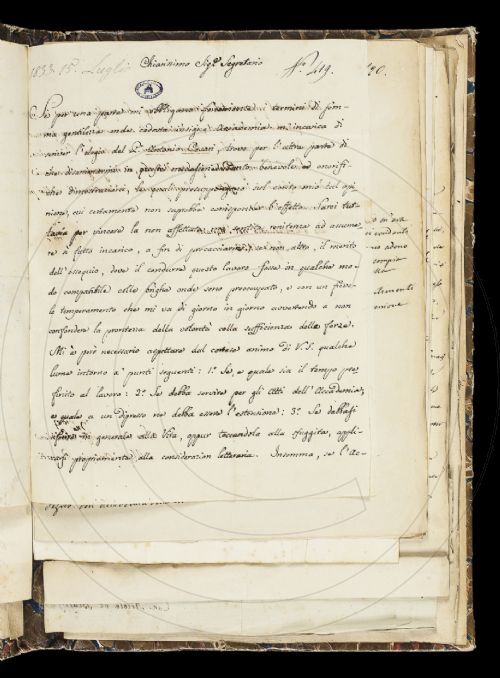 1833. 15. Luglio
Chiarissimo Sig.r Segretario
N.° 419.
30.
Se per una parte mi obbligano i termini di som-
ma gentilezza onde codesta insigne Accademia m'incarica di
scriver l'elogio del P. Antonio Cesari, trovo per l'altra parte di
che
benevole ed onorifi-
che dimostrazioni, le quali
del conto mio tal opi-
nione, cui certamente non saprebbe corrisponder l'effetto. Sarei tut-
tavia per vincere la non affettata mia renitenza ad assume-
re sì fatto incarico, a fin di procacciarmi, se non altro, il merito
dell'ossequio, dove il condurre questo lavoro fosse in qualche mo-
do compatibile colle brighe onde sono preoccupato, e con un fievo-
le temperamento che mi va di giorno in giorno avvertendo a non
confondere la prontezza della volontà colla sufficienza delle forze.
Mi è però necessario aspettare dal cortese animo di V. S. qualche
lume intorno a' punti seguenti: 1.° Se, e qual sia il tempo pre-
finito al lavoro: 2.° Se debba servire per gli Atti dell'Accademia,
e quale a un dipresso ne debba essere l'estensione: 3.° Se debbasi
in generale alla Vita, oppur toccandola alla sfuggita, appli-
carsi propriamente alla considerazion letteraria. Insomma, se l'Ac-